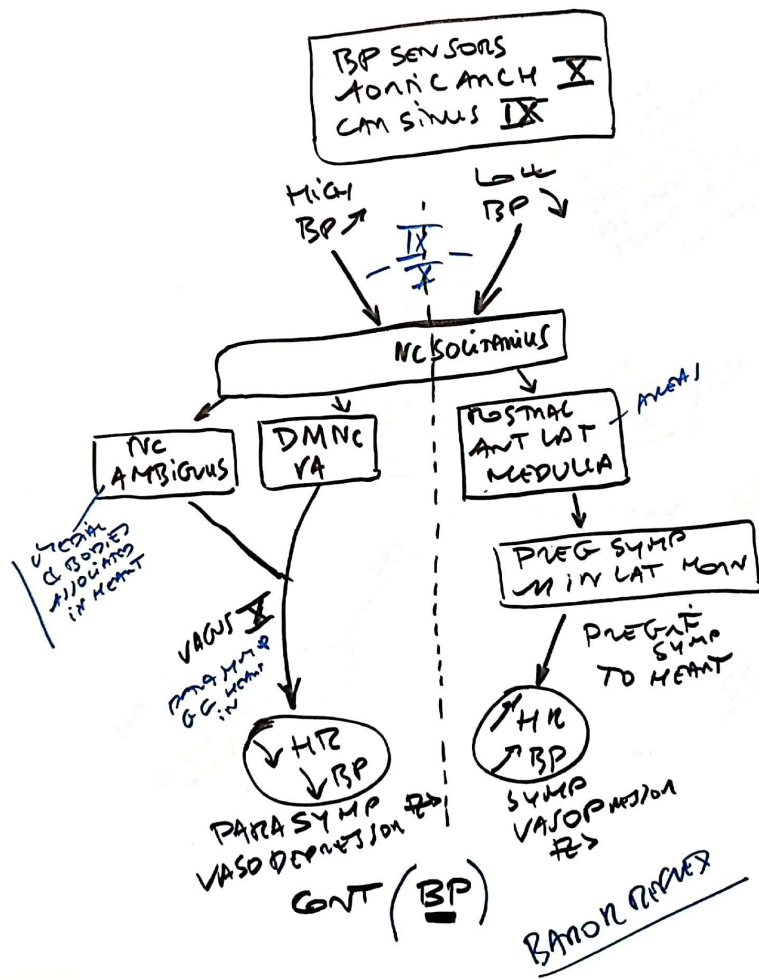 BP SENSORS
AORTIC ARCH X
CAR SINUS IX
HIGH
BP ↗
LOW
BP ↘
IX
X
NC SOLITARIUS
NC
AMBIGUUS
DMNC
VA
ROSTRAL
ANT LAT
MEDULLA
AREAS
MEDIAL
C BODIES
ASSOCIATED
IN HEART
PREG SYMP
IN LAT HORN
VAGUS X
PARASYMP
GG HEART
IN
PREG
SYMP
TO HEART
↘ HR
↘ BP
↗ HR
↗ BP
PARASYMP
VASODEPRESSION
SYMP
VASOPRESSION
CONT (BP)
BAROR REFLEX